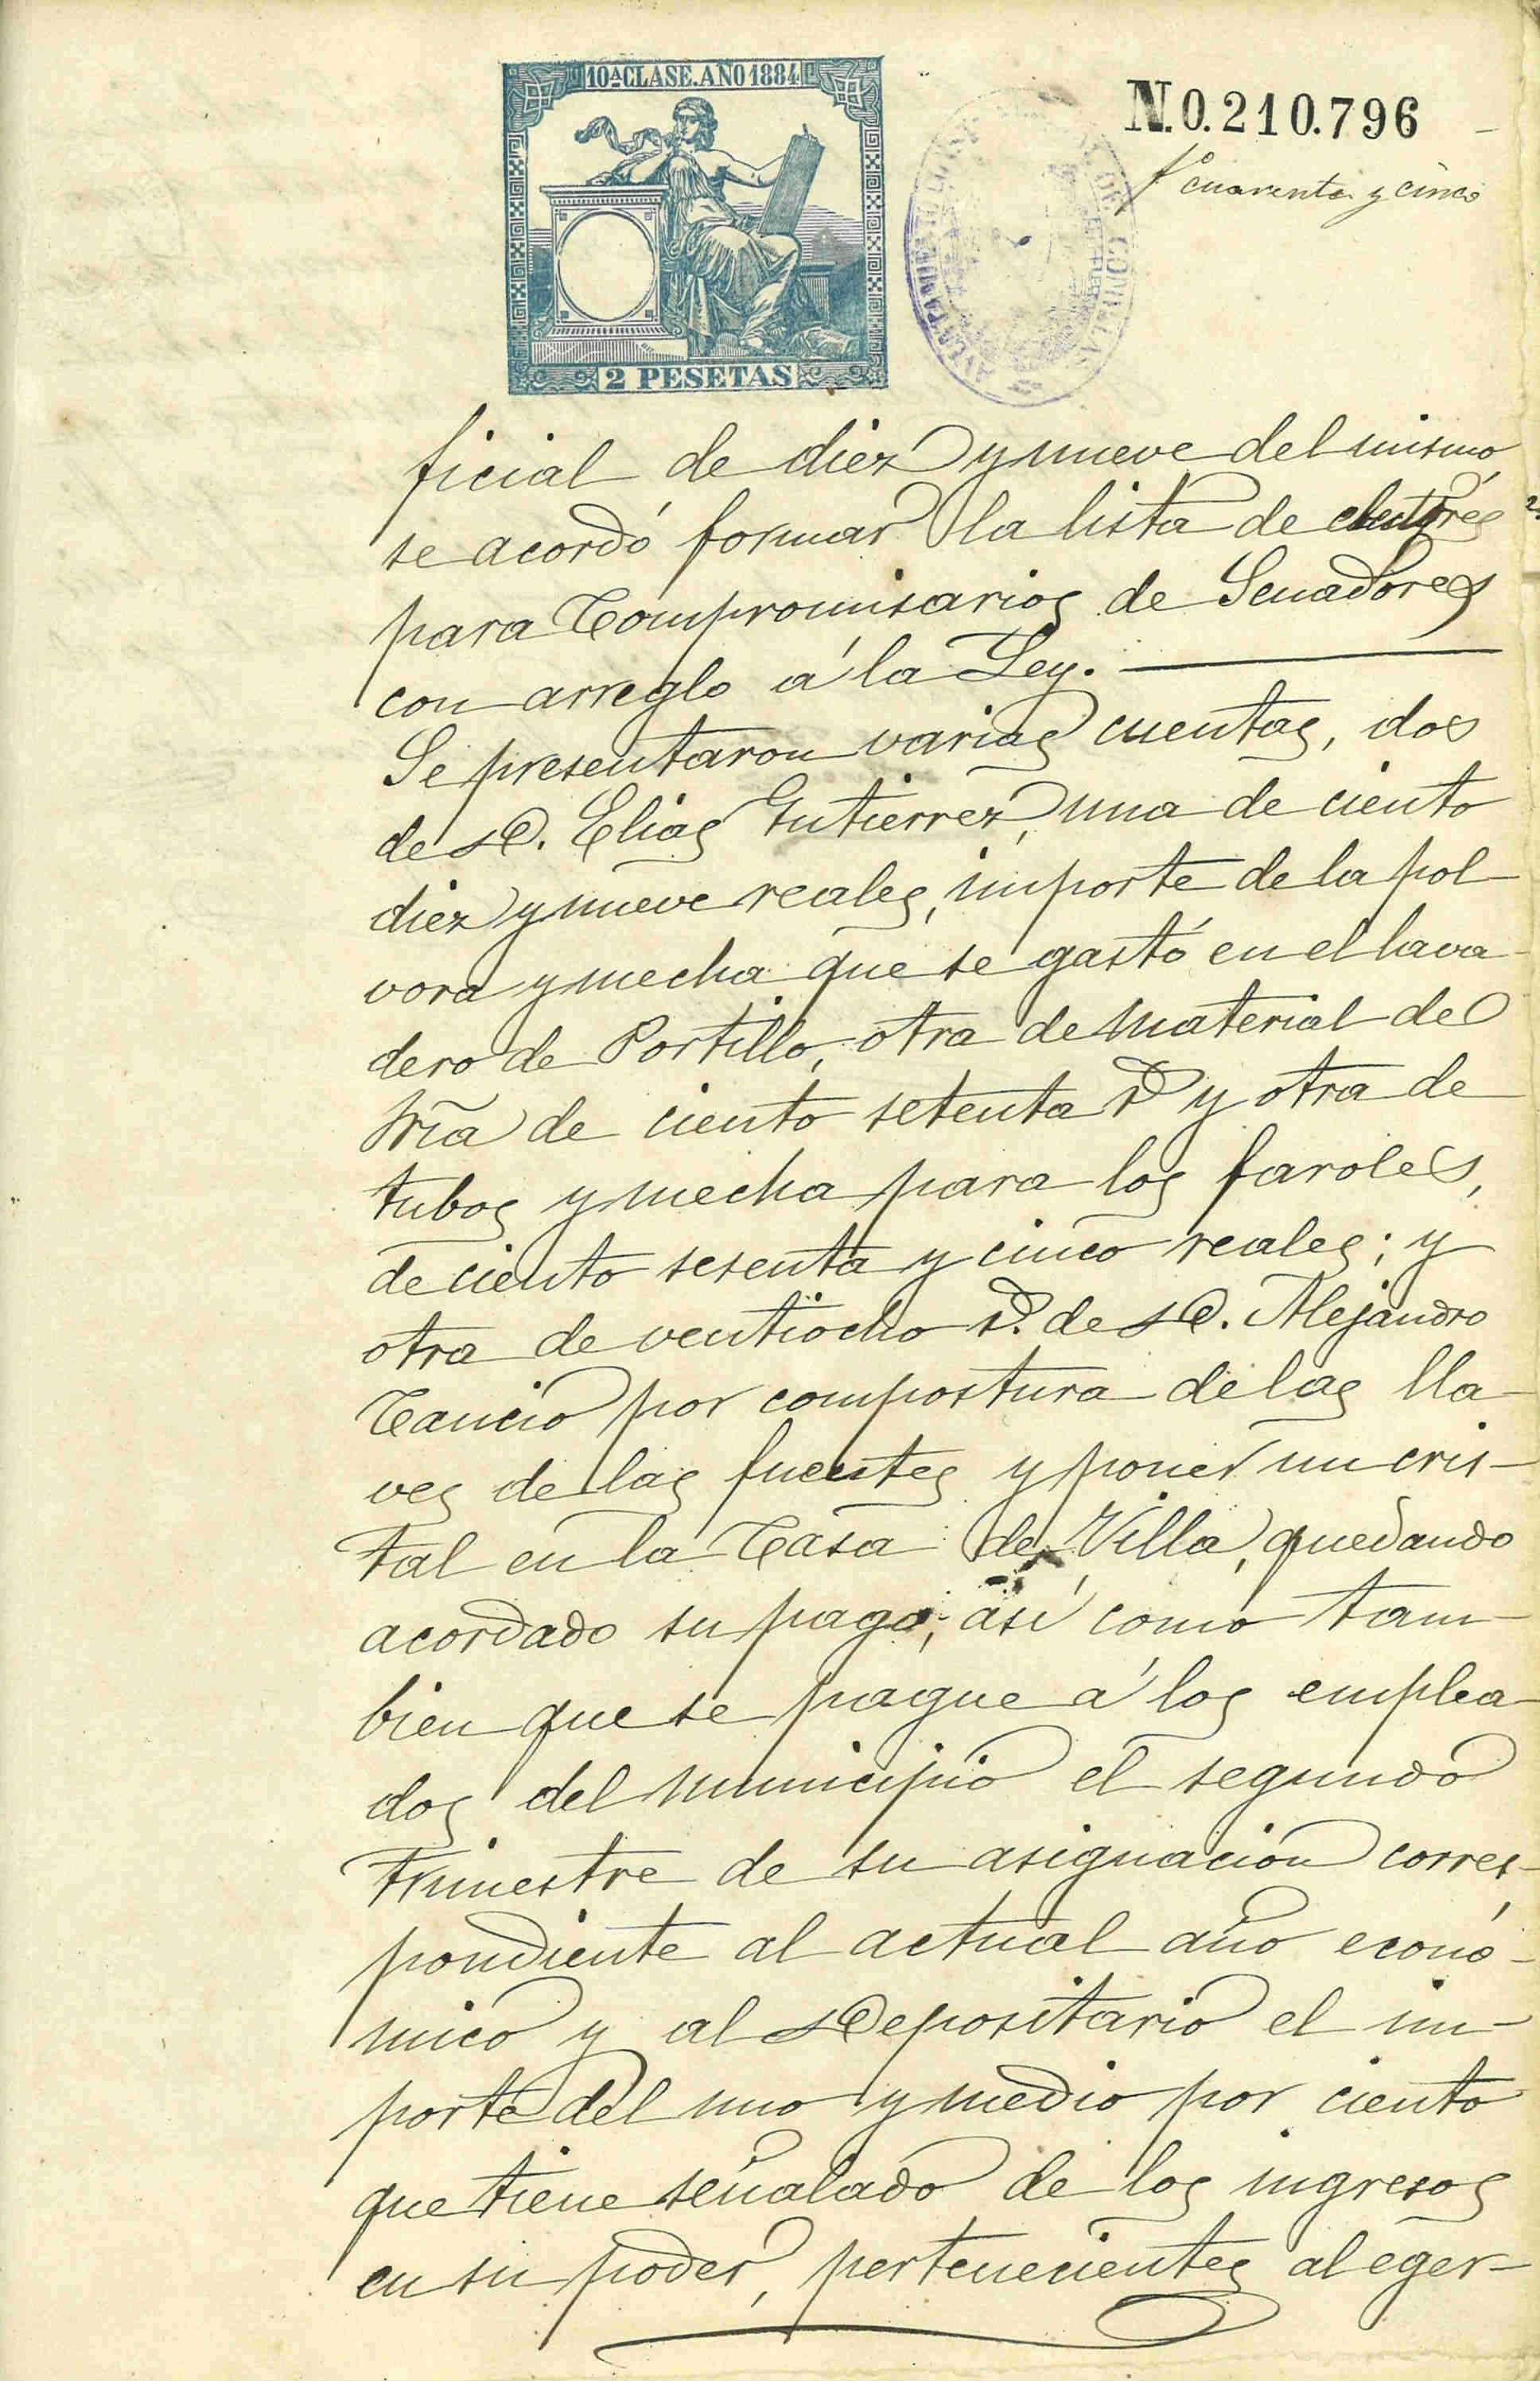 10ª CLASE. AÑO 1884
N.0.210.796
fº cuarenta y cinco
AYUNTAMIENTO DE COMILLAS
2 PESETAS
ficial de diez y nueve del mismo
se acordó formar la lista de electores
para Compromisarios de Senadores
con arreglo á la Ley.
Se presentaron varias cuentas, dos
de D. Elias Gutierrez, una de ciento
diez y nueve reales, importe de la pol
vora y mecha que se gastó en el lava-
dero de Portillo, otra de material de
Sría de ciento setenta rs y otra de
tubos y mecha para los faroles,
de ciento sesenta y cinco reales; y
otra de ventiocho rs. de D. Alejandro
Cancio por compostura de las lla-
ves de las fuentes y poner un cris-
tal en la Casa de Villa, quedando
acordado su pago; así como tam-
bien que se pague á los emplea-
dos del municipio el segundo
trimestre de su asignacion corres-
pondiente al actual año econó-
mico y al Depositario el im-
porte del uno y medio por ciento
que tiene señalado de los ingresos
en su poder, pertenecientes al eger-